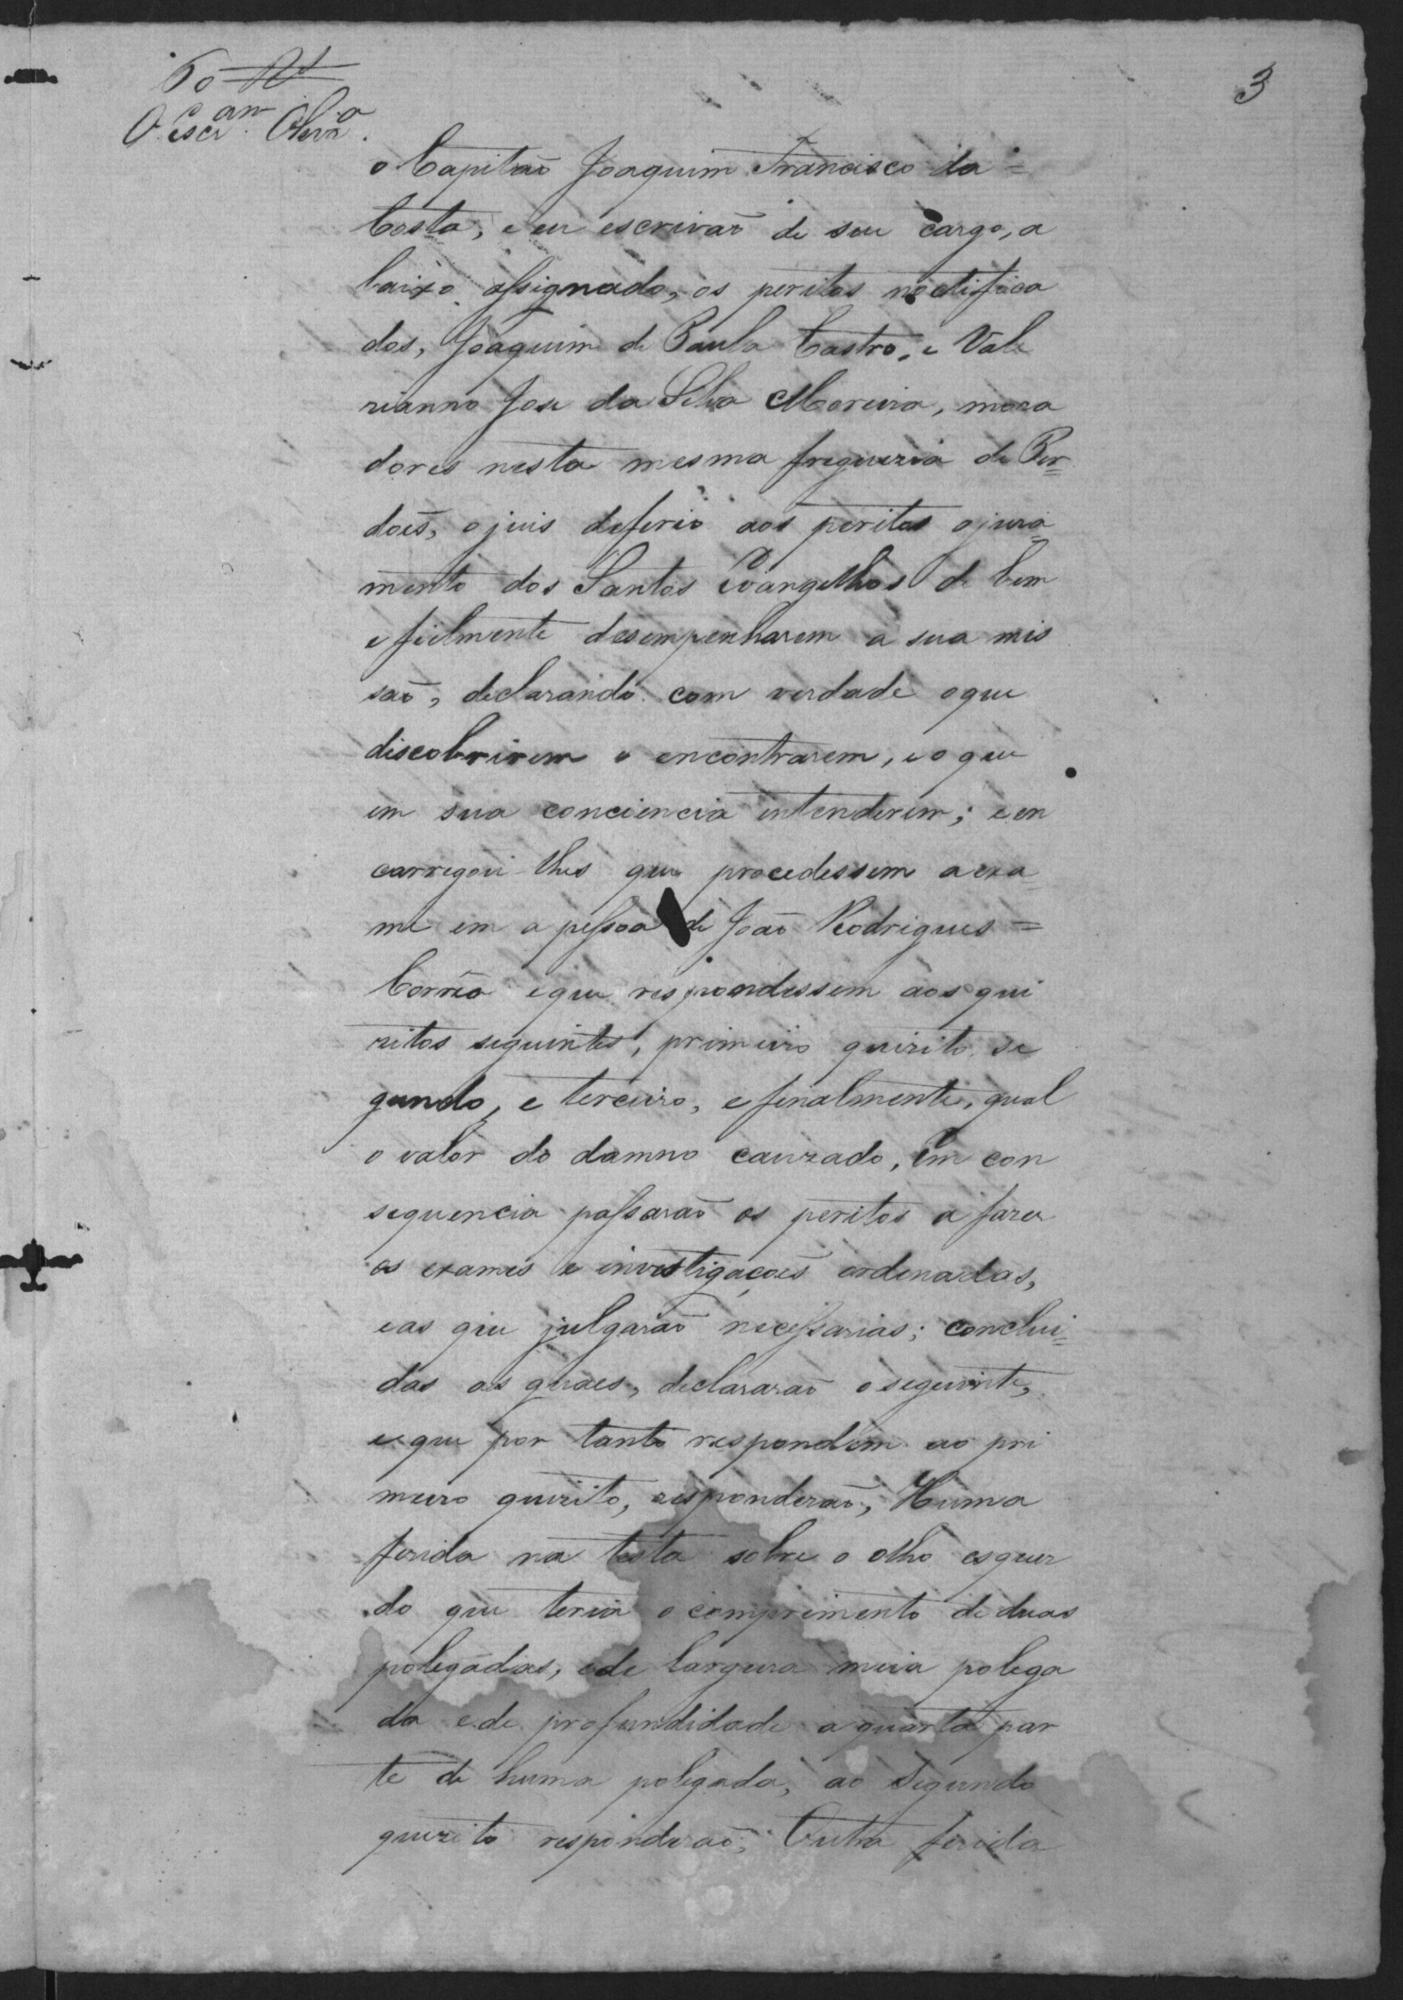 3
O escr.am Olivr.a
o Capitão Joaquim Francisco da =
Costa, e eu escrivaõ de seu cargo, a
baixo assignado, os peritos noctifica
dos, Joaquim de Paula Castro, e Vale
rianno Jose da Silva Moreira, mora
dores nesta mesma freguezia de Per=
does, o juis deferio aos peritos o jura=
mento dos Santos Evangelhos de bem
e fielmente desempenharem a sua mis
saõ, declarando com verdade o que
discobrirem e encontrarem, e o que
em sua conciencia entenderem; e en
carregou lhes que procedessem a exa=
me em a pessoa de Joaõ Rodrigues =
Corrêa e que respondessem aos qui
zitos seguintes, primeiro quizito, se
gundo, e terceiro, e finalmente, qual
o valor do damno cauzado, Em con
sequencia passaraõ os peritos a fazer
os exames e investigaçoēs ordenadas,
e as que julgaraõ necessarias; conclui=
das as quaes, declararaõ o seguinte,
e que por tanto respondem ao pri
meiro quizito, responderaõ, Huma
ferida na testa sobre o olho esquer
do que teria o comprimento de duas
polegadas, e de largura meia polega
da e de profundidade a quarta par
te de huma polegada, ao segundo
quezito responderaõ, Outra ferida